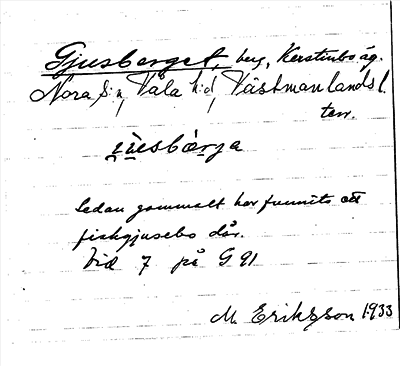 Gjusberget, berg, Kerstinbo äg.
Nora sn, Våla hd, Västmanlands l.
terr.
jùsbærja
Sedan gammalt har funnits ett
fiskgjusebo där.
Vid 7 på G 91
M. Eriksson 1933